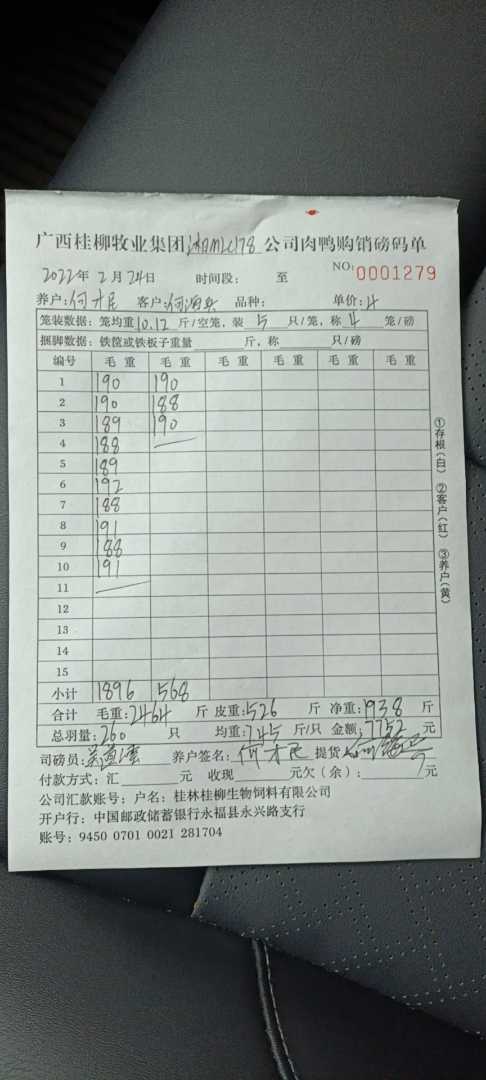 广西桂柳牧业集团 公司肉鸭购销磅码单
2022年 2月 24日 时间段: 至 NO:0001279
养户:何才民 客户:何海兵 品种: 单价:4
笼装数据: 笼均重10.12斤/空笼，装 5 只/笼，称 4 笼/磅
捆脚数据: 铁筐或铁板子重量 斤，称 只/磅
编号 毛 重 毛 重 毛 重 毛 重 毛 重 毛 重
1 190 190
2 190 188
3 189 190
4 188
5 189
6 192
7 188
8 191
9 188
10 191
11
12
13
14
15
小计 1896 568
合计 毛重:2464 斤 皮重:526 斤 净重:1938 斤
总羽量:260 只 均重:7.45 斤/只 金额:7752 元
司磅员: 养户签名:何才民 提货
付款方式: 汇 元 收现 元欠(余): 元
公司汇款账号: 户名: 桂林桂柳生物饲料有限公司
开户行: 中国邮政储蓄银行永福县永兴路支行
账号: 9450 0701 0021 281704
①存根(白) ②客户(红) ③养户(黄)